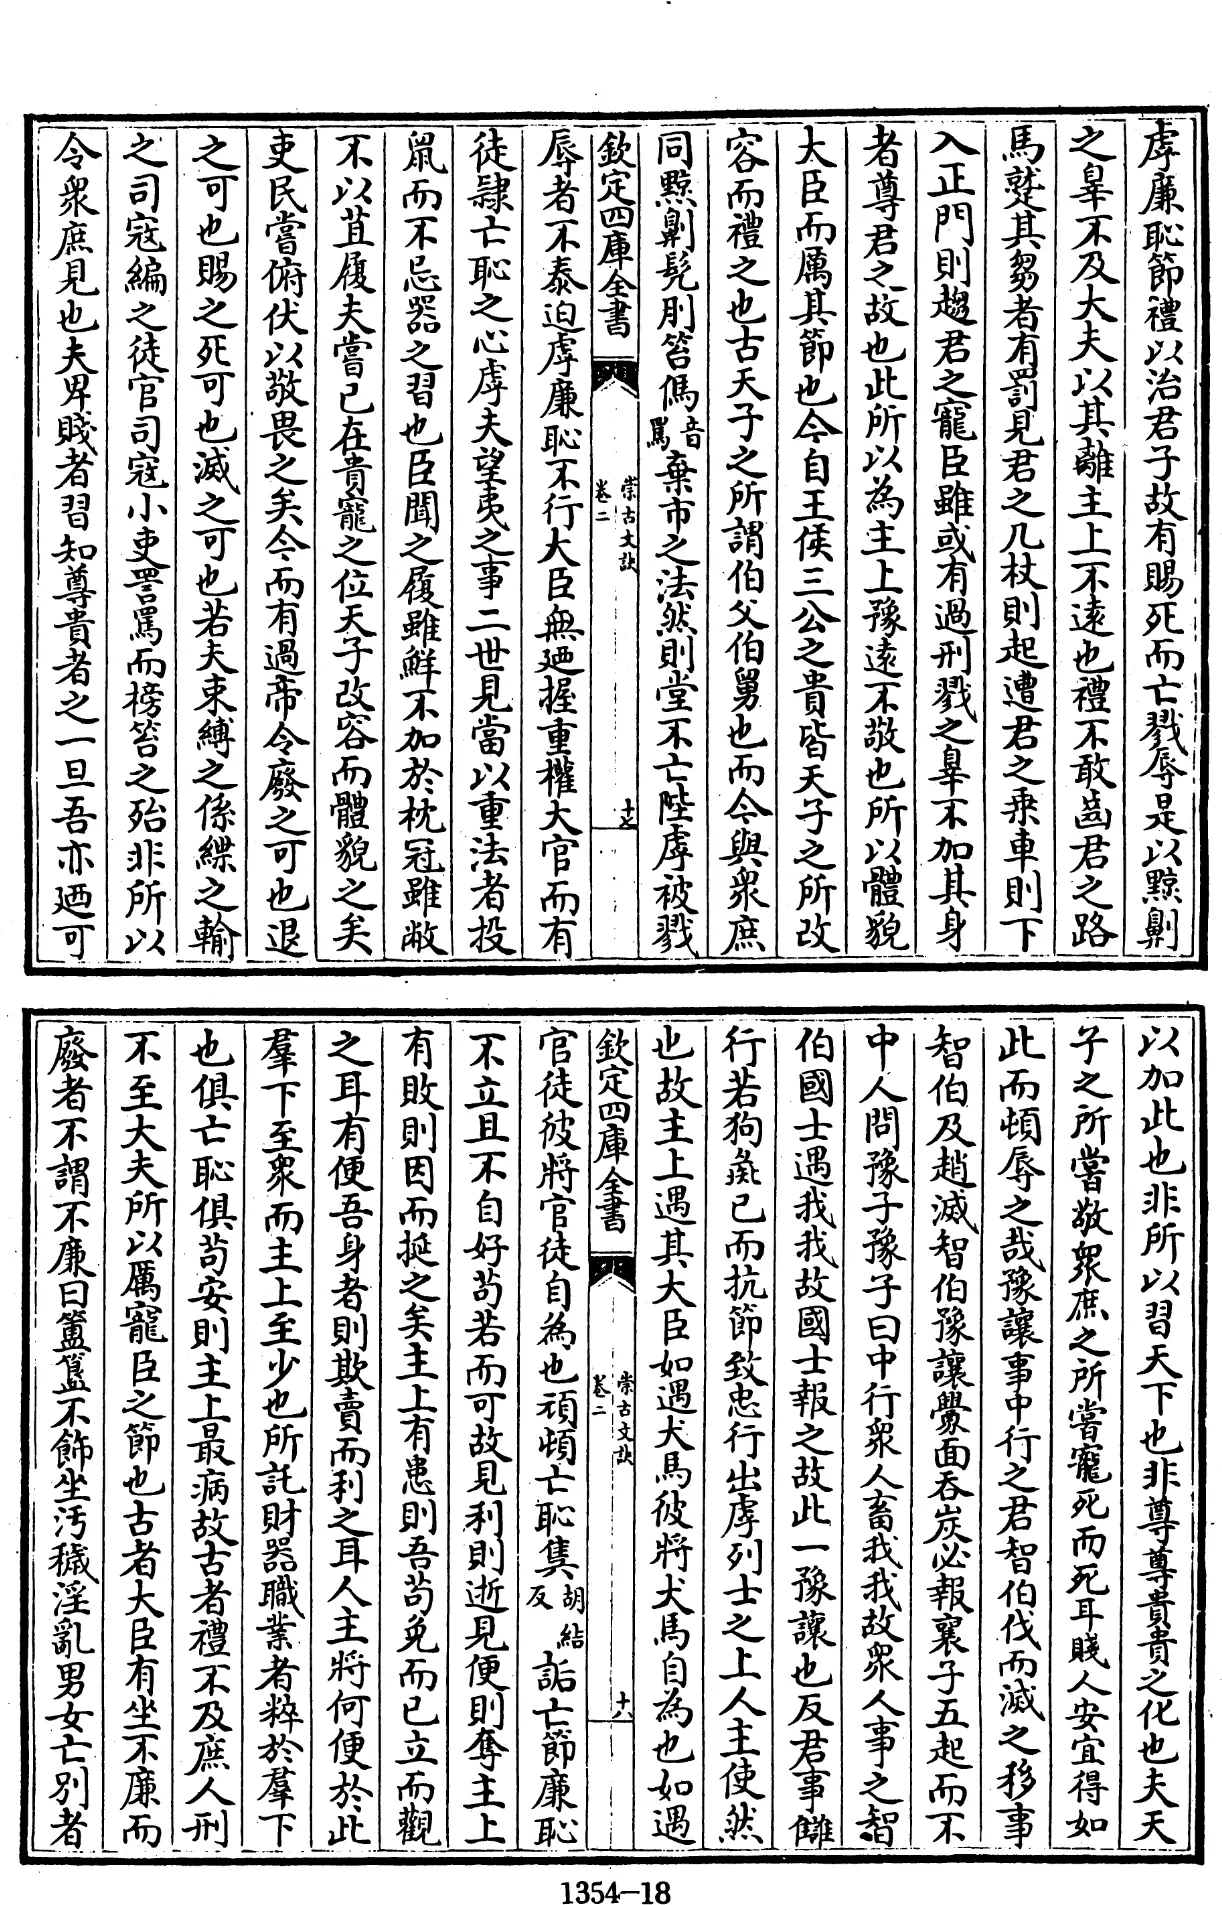 虖廉恥節禮以治君子故有賜死而亡戮辱是以黥劓
之辠不及大夫以其離主上不遠也禮不敢齒君之路
馬蹵其芻者有罰見君之几杖則起遭君之乗車則下
入正門則趨君之寵臣雖或有過刑戮之辠不加其身
者尊君之故也此所以為主上豫逺不敬也所以體貌
大臣而厲其節也今自王侯三公之貴皆天子之所改
容而禮之也古天子之所謂伯父伯舅也而今與衆庶
同黥劓髠刖笞傌音罵棄市之法然則堂不亡陛虖被戮
欽定四庫全書
崇古文訣
卷二
十七
辱者不泰迫虖廉恥不行大臣無廼握重權大官而有
徒隷亡恥之心虖夫望夷之事二世見當以重法者投
鼠而不忌器之習也臣聞之履雖鮮不加於枕冠雖敝
不以苴履夫嘗已在貴寵之位天子改容而體貌之矣
吏民嘗俯伏以敬畏之矣今而有過帝令廢之可也退
之可也賜之死可也滅之可也若夫束縛之係緤之輸
之司宼編之徒官司宼小吏詈罵而榜笞之殆非所以
令衆庶見也夫卑賤者習知尊貴者之一旦吾亦廼可
以加此也非所以習天下也非尊尊貴貴之化也夫天
子之所嘗敬衆庶之所嘗寵死而死耳賤人安宜得如
此而頓辱之哉豫讓事中行之君智伯伐而滅之移事
智伯及趙滅智伯豫讓釁面吞炭必報襄子五起而不
中人問豫子豫子曰中行衆人畜我我故衆人事之智
伯國士遇我我故國士報之故此一豫讓也反君事讎
行若狗彘已而抗節致忠行出虖列士之上人主使然
也故主上遇其大臣如遇犬馬彼將犬馬自為也如遇
欽定四庫全書
崇古文訣
卷二
十八
官徒彼將官徒自為也頑頓亡恥𡙇胡結反詬亡節廉恥
不立且不自好苟若而可故見利則逝見便則奪主上
有敗則因而挻之矣主上有患則吾苟免而已立而觀
之耳有便吾身者則欺賣而利之耳人主將何便於此
羣下至衆而主上至少也所託財器職業者粹於羣下
也俱亡恥俱苟安則主上最病故古者禮不及庶人刑
不至大夫所以厲寵臣之節也古者大臣有坐不廉而
廢者不謂不廉曰簠簋不飾坐汚穢淫亂男女亡别者
1354-18